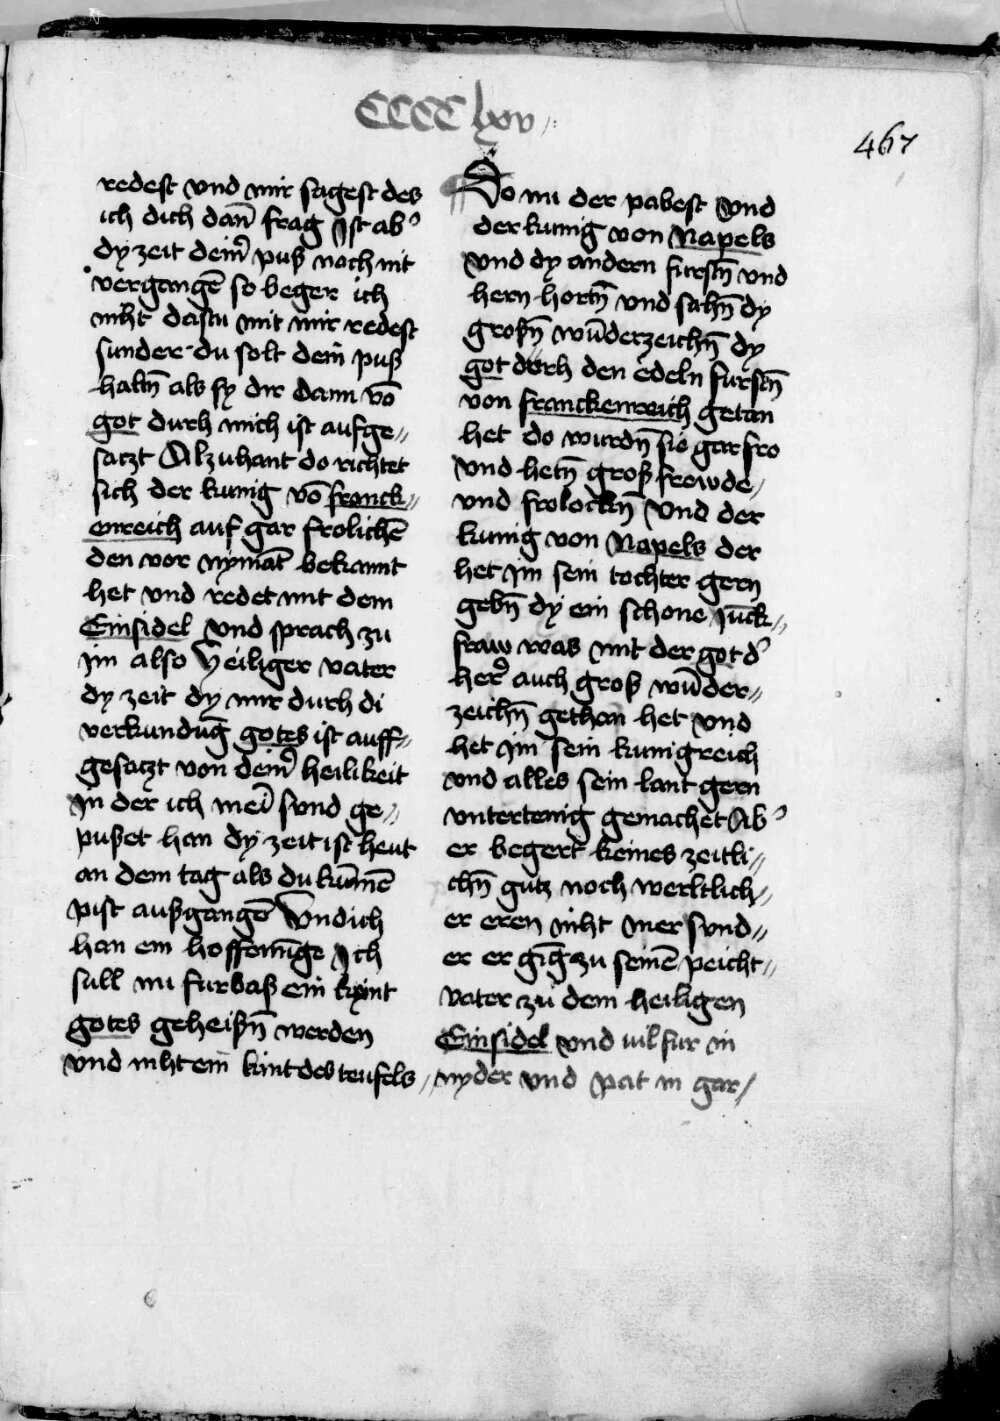 CCCC lxv
467
redest vnd mir sagest des
ich dich dan̄ frag Jst ab᾿
dy zeit dein᾿ puß noch nit
vergangē so beger ich
niht dastu mit mir redest
sunder du solt dein puß
haltn̄ als sy dir dann vō
got durh mich ist aufge〃
saczt Alzuhant do richtet
sich der kunig vō franck〃
enreich auf gar frolichē
den vor nyman̄t bekannt
het vnd redet mit dem
Einsidel vnd sprach zu
im also Heiliger vater
dy zeit dy mir durh di
verkundūg gotes ist auff〃
gesaczt von dein᾿ heilikeit
Jn der ich mei̅ sund ge〃
pußet han dy zeit ist heut
an dem tag als du kūmē
pist außgangē Vnd ich
han ein hoffenūge Jch
sull nu furbaß ein kint
gotes geheißn̄ werden
vnd niht ein kint des teufels〃
Do nu der pabest vnd
der kunig von Napels
vnd dy andern furstn̄ vnd
hern hortn̄ vnd sahn̄ dy
großn̄ wūderzeichn̄ dy
got durh den edeln furstn̄
von franckenreich getan
het do wurdn̄ sie gar fro
vnd hetn̄ groß frewde
vnd frolockn̄ Vnd der
kunig von Napels der
het im sein tochter gern
gebn̄ dy ein schone Jūck〃
fraw was mit der got d᾿
her᾿ auch groß wūder〃
zeichn̄ gethan het vnd
het im sein kunigreich
vnd alles sein lant gern
vntertenig gemachet Ab᾿
er begert keines zeitli〃
chn̄ gutz noch werltlich〃
er eren niht mer sund〃
er er gīg zu seinē peicht〃
vater zu dem heiligen
Einsidel vnd vil fur in
nyder vnd pat in gar/